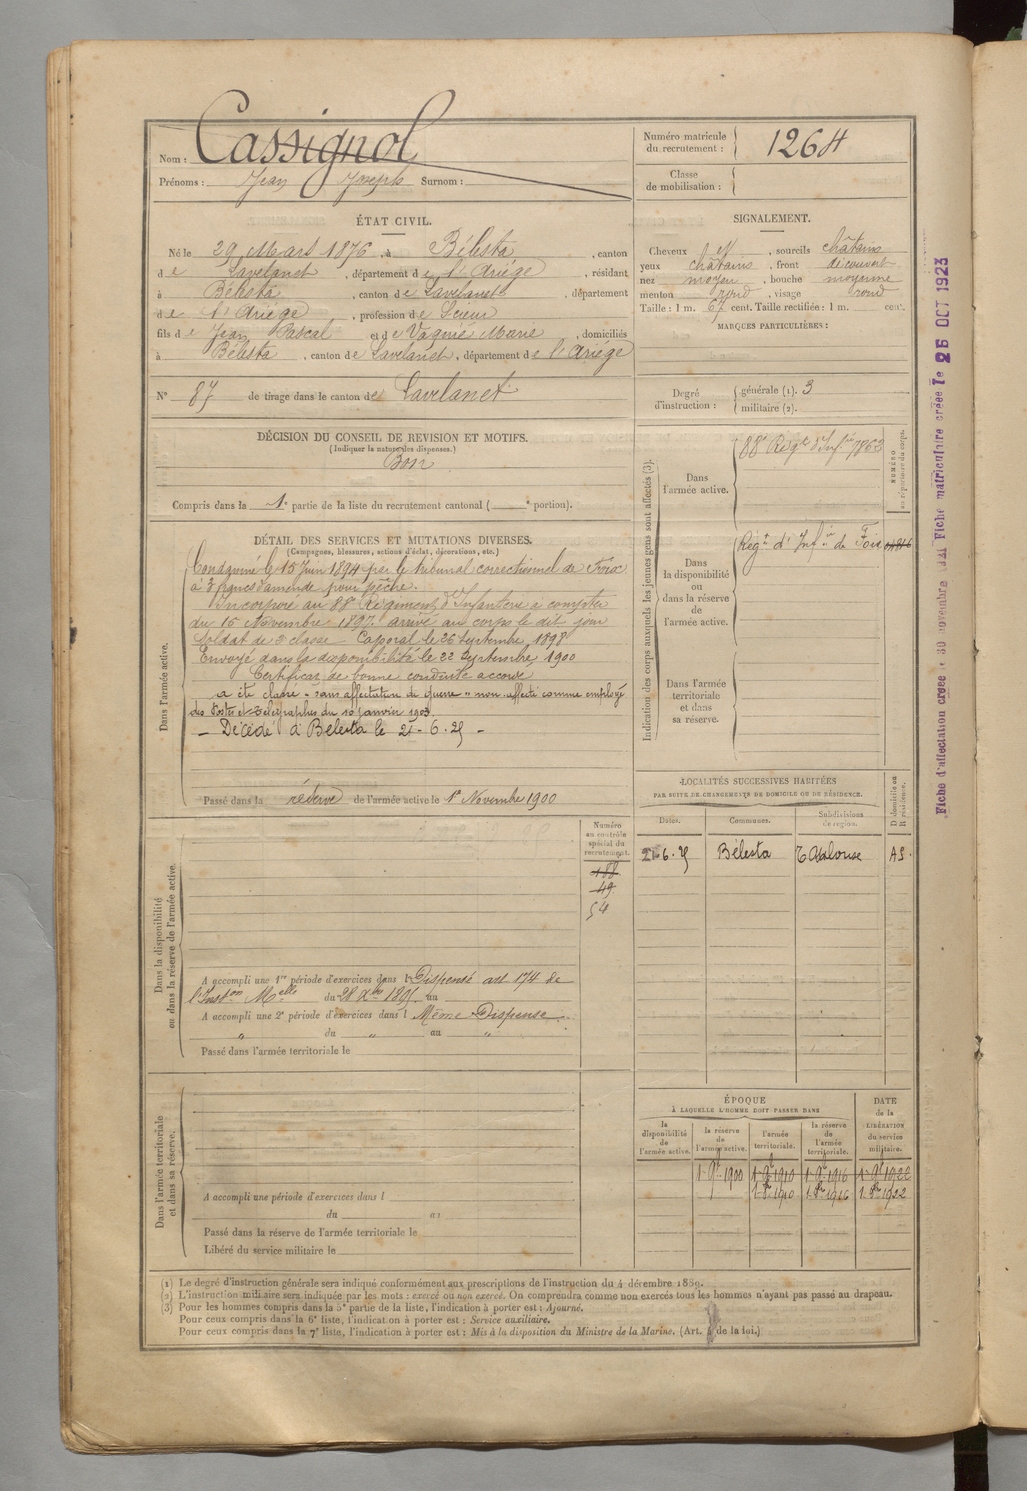 Nom : Cassignol
Prénoms : Jean Joseph Surnom :
Numéro matricule du recrutement : 1264
Classe de mobilisation :
ÉTAT CIVIL.
Né le 29 Mars 1876, à Bélesta, canton
de Lavelanet, département de l'Ariége, résidant
à Bélesta, canton de Lavelanet, département
de l'Ariége, profession de
fils de Jean Pascal et de Vaquié Marie, domiciliés
à Bélesta, canton de Lavelanet, département de l'Ariége
N° 87 de tirage dans le canton de Lavelanet
SIGNALEMENT.
Cheveux et, sourcils châtains
yeux châtains, front découvert
nez moyen, bouche moyenne
menton rond, visage rond
Taille : 1 m. 67 cent. Taille rectifiée : 1 m. cent.
MARQUES PARTICULIÈRES :
Degré d'instruction : générale (1). 3
militaire (2).
DÉCISION DU CONSEIL DE REVISION ET MOTIFS.
(Indiquer la nature des dispenses.)
Bon
Compris dans la 1e partie de la liste du recrutement cantonal ( e portion).
DÉTAIL DES SERVICES ET MUTATIONS DIVERSES.
(Campagnes, blessures, actions d'éclat, décorations, etc.)
Dans l'armée active.
Condamné le 15 Juin 1894 par le tribunal correctionnel de Foix
à 3 francs d'amende pour pêche.
Incorporé au 88e Régiment d'Infanterie à compter
du 16 Novembre 1897. arrivé au corps le dit jour
Soldat de 2e classe Caporal le 26 Septembre 1898
Envoyé dans la disponibilité le 22 Septembre 1900
Certificat de bonne conduite accordé
a été classé "sans affectation de guerre" non affecté comme employé
des Postes et Télégraphes du 10 janvier 1903
— Décédé à Bélesta le 21-6-25 —
Passé dans la réserve de l'armée active le 1er Novembre 1900
Indication des corps auxquels les jeunes gens sont affectés (3).
NUMÉRO au répertoire du corps.
Dans l'armée active.
88e Régt d'Infie 7862
Dans la disponibilité ou dans la réserve de l'armée active.
Régt d'Infie de Foix
Dans l'armée territoriale et dans sa réserve.
LOCALITÉS SUCCESSIVES HABITÉES
PAR SUITE DE CHANGEMENTS DE DOMICILE OU DE RÉSIDENCE.
Dates. Communes. Subdivisions de région. D domicile ou R résidence.
21-6-25 Bélesta Toulouse
Numéro au contrôle spécial du recrutement.
188
49
54
Dans la disponibilité ou dans la réserve de l'armée active.
A accompli une 1re période d'exercices dans l Dispensé art 174 de
l'Inston Melle du 28 Xbre 1895 au
A accompli une 2e période d'exercices dans l Même Dispense
" du " au "
Passé dans l'armée territoriale le
Dans l'armée territoriale et dans sa réserve.
A accompli une période d'exercices dans l
du au
Passé dans la réserve de l'armée territoriale le
Libéré du service militaire le
ÉPOQUE
À LAQUELLE L'HOMME DOIT PASSER DANS
la disponibilité de l'armée active. la réserve de l'armée active. l'armée territoriale. la réserve de l'armée territoriale.
DATE de la LIBÉRATION du service militaire.
1 9bre 1900 1 9bre 1910 1 9bre 1916 1 9bre 1922
1 8bre 1910 1 8bre 1916 1 8bre 1922
(1) Le degré d'instruction générale sera indiqué conformément aux prescriptions de l'instruction du 4 décembre 1889.
(2) L'instruction militaire sera indiquée par les mots : exercé ou non exercé. On comprendra comme non exercés tous les hommes n'ayant pas passé au drapeau.
(3) Pour les hommes compris dans la 5e partie de la liste, l'indication à porter est : Ajourné.
Pour ceux compris dans la 6e liste, l'indication à porter est : Service auxiliaire.
Pour ceux compris dans la 7e liste, l'indication à porter est : Mis à la disposition du Ministre de la Marine. (Art. 4 de la loi.)
Fiche d'affectation créée le 30 novembre Fiche matriculaire créée le 26 OCT 1923